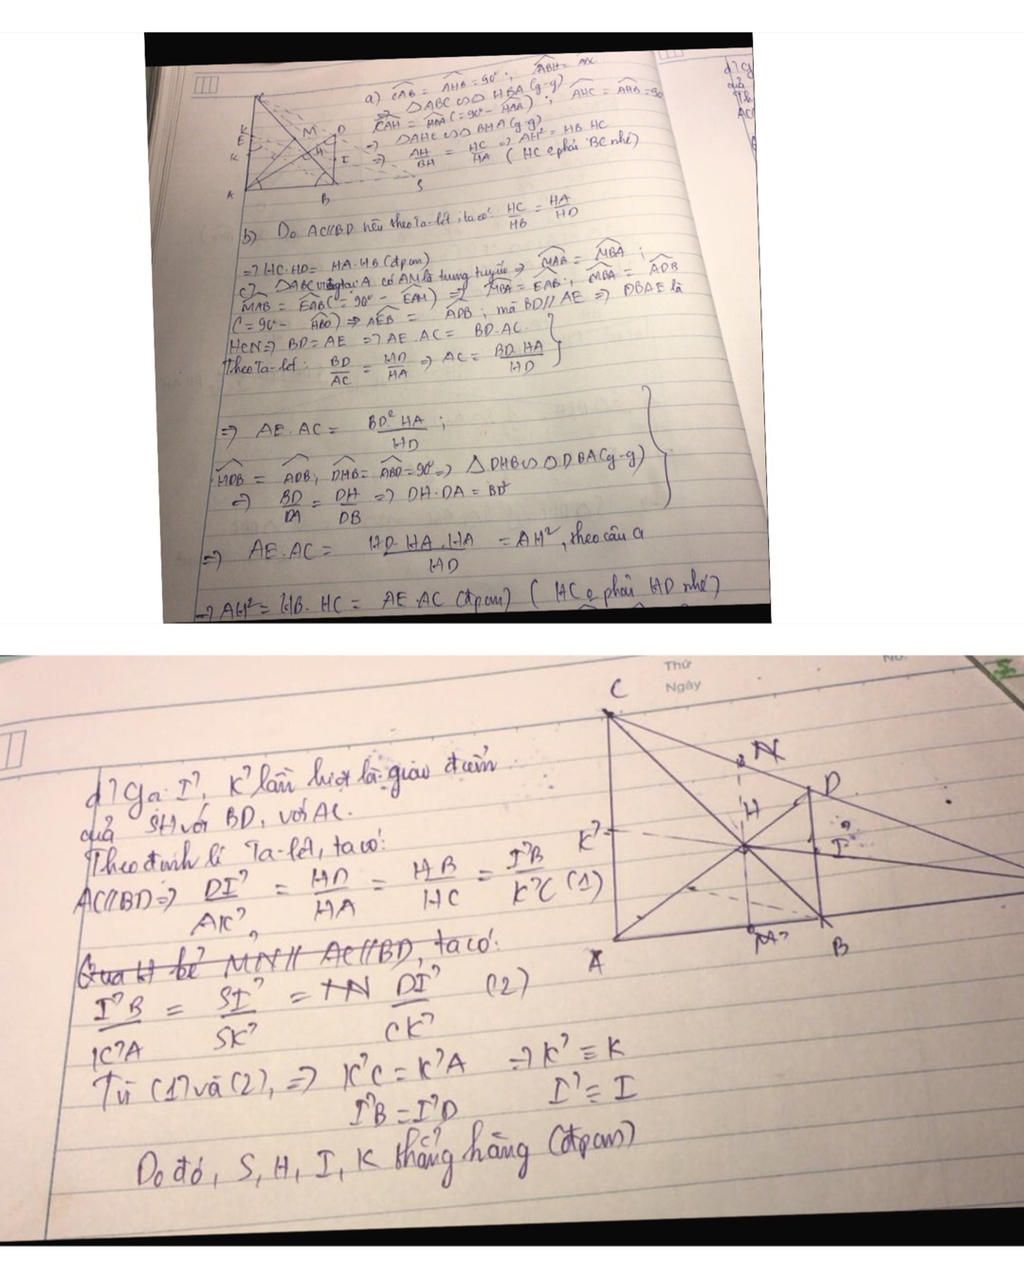 C
K
E
K
M
D
H
I
A
B
S
a) CAB = AHB = 90° ; ABH = ABC
=> ΔABC ∽ Δ HBA (g-g)
CAH = HBA (= 90° - HAB) ; AHC = AHB = 90
=> ΔAHC ∽ Δ BHA (g-g)
=> AH/BH = HC/HA => AH² = HB. HC
( HC ạ phải BC nhé)
b) Do AC//BD nên theo Ta-lét, ta có: HC/HB = HA/HD
=> HC.HD = HA.HB (đpcm)
c) ΔABC vuông tại A có AM là trung tuyến => MAB = MBA ;
MAB = EAB (= 90° - EAM) => MBA = EAB ; MBA = ADB
(= 90° - HBD) => AEB = ADB ; mà BD // AE => DBAE là
HCN => BD = AE => AE.AC = BD.AC.
Theo Ta-lét: BD/AC = HD/HA => AC = BD.HA/HD
=> AE.AC = BD².HA/HD ;
HDB = ADB, DHB = ABD = 90° => Δ DHB ∽ Δ DBA (g-g)
=> BD/DA = DH/DB => DH.DA = BD²
=> AE.AC = HD.HA.HA/HD = AH², theo câu a
=> AH² = HB. HC = AE.AC (đpcm) ( HC ạ phải HD nhé)
Thứ
Ngày
C
N
D
H
K?
I?
A
M?
B
d) Gọi I?, K? lần lượt là giao điểm
của SH với BD, với AC.
Theo định lí Ta-lét, ta có:
AC//BD => DI?/AK? = HD/HA = HB/HC = I?B/K?C (1)
Qua H kẻ MN // AC//BD, ta có:
I?B/K?A = SI?/SK? = DI?/CK? (2)
Từ (1) và (2), => K?C = K?A => K? ≡ K
I?B = I?D I? ≡ I
Do đó, S, H, I, K thẳng hàng (đpcm)